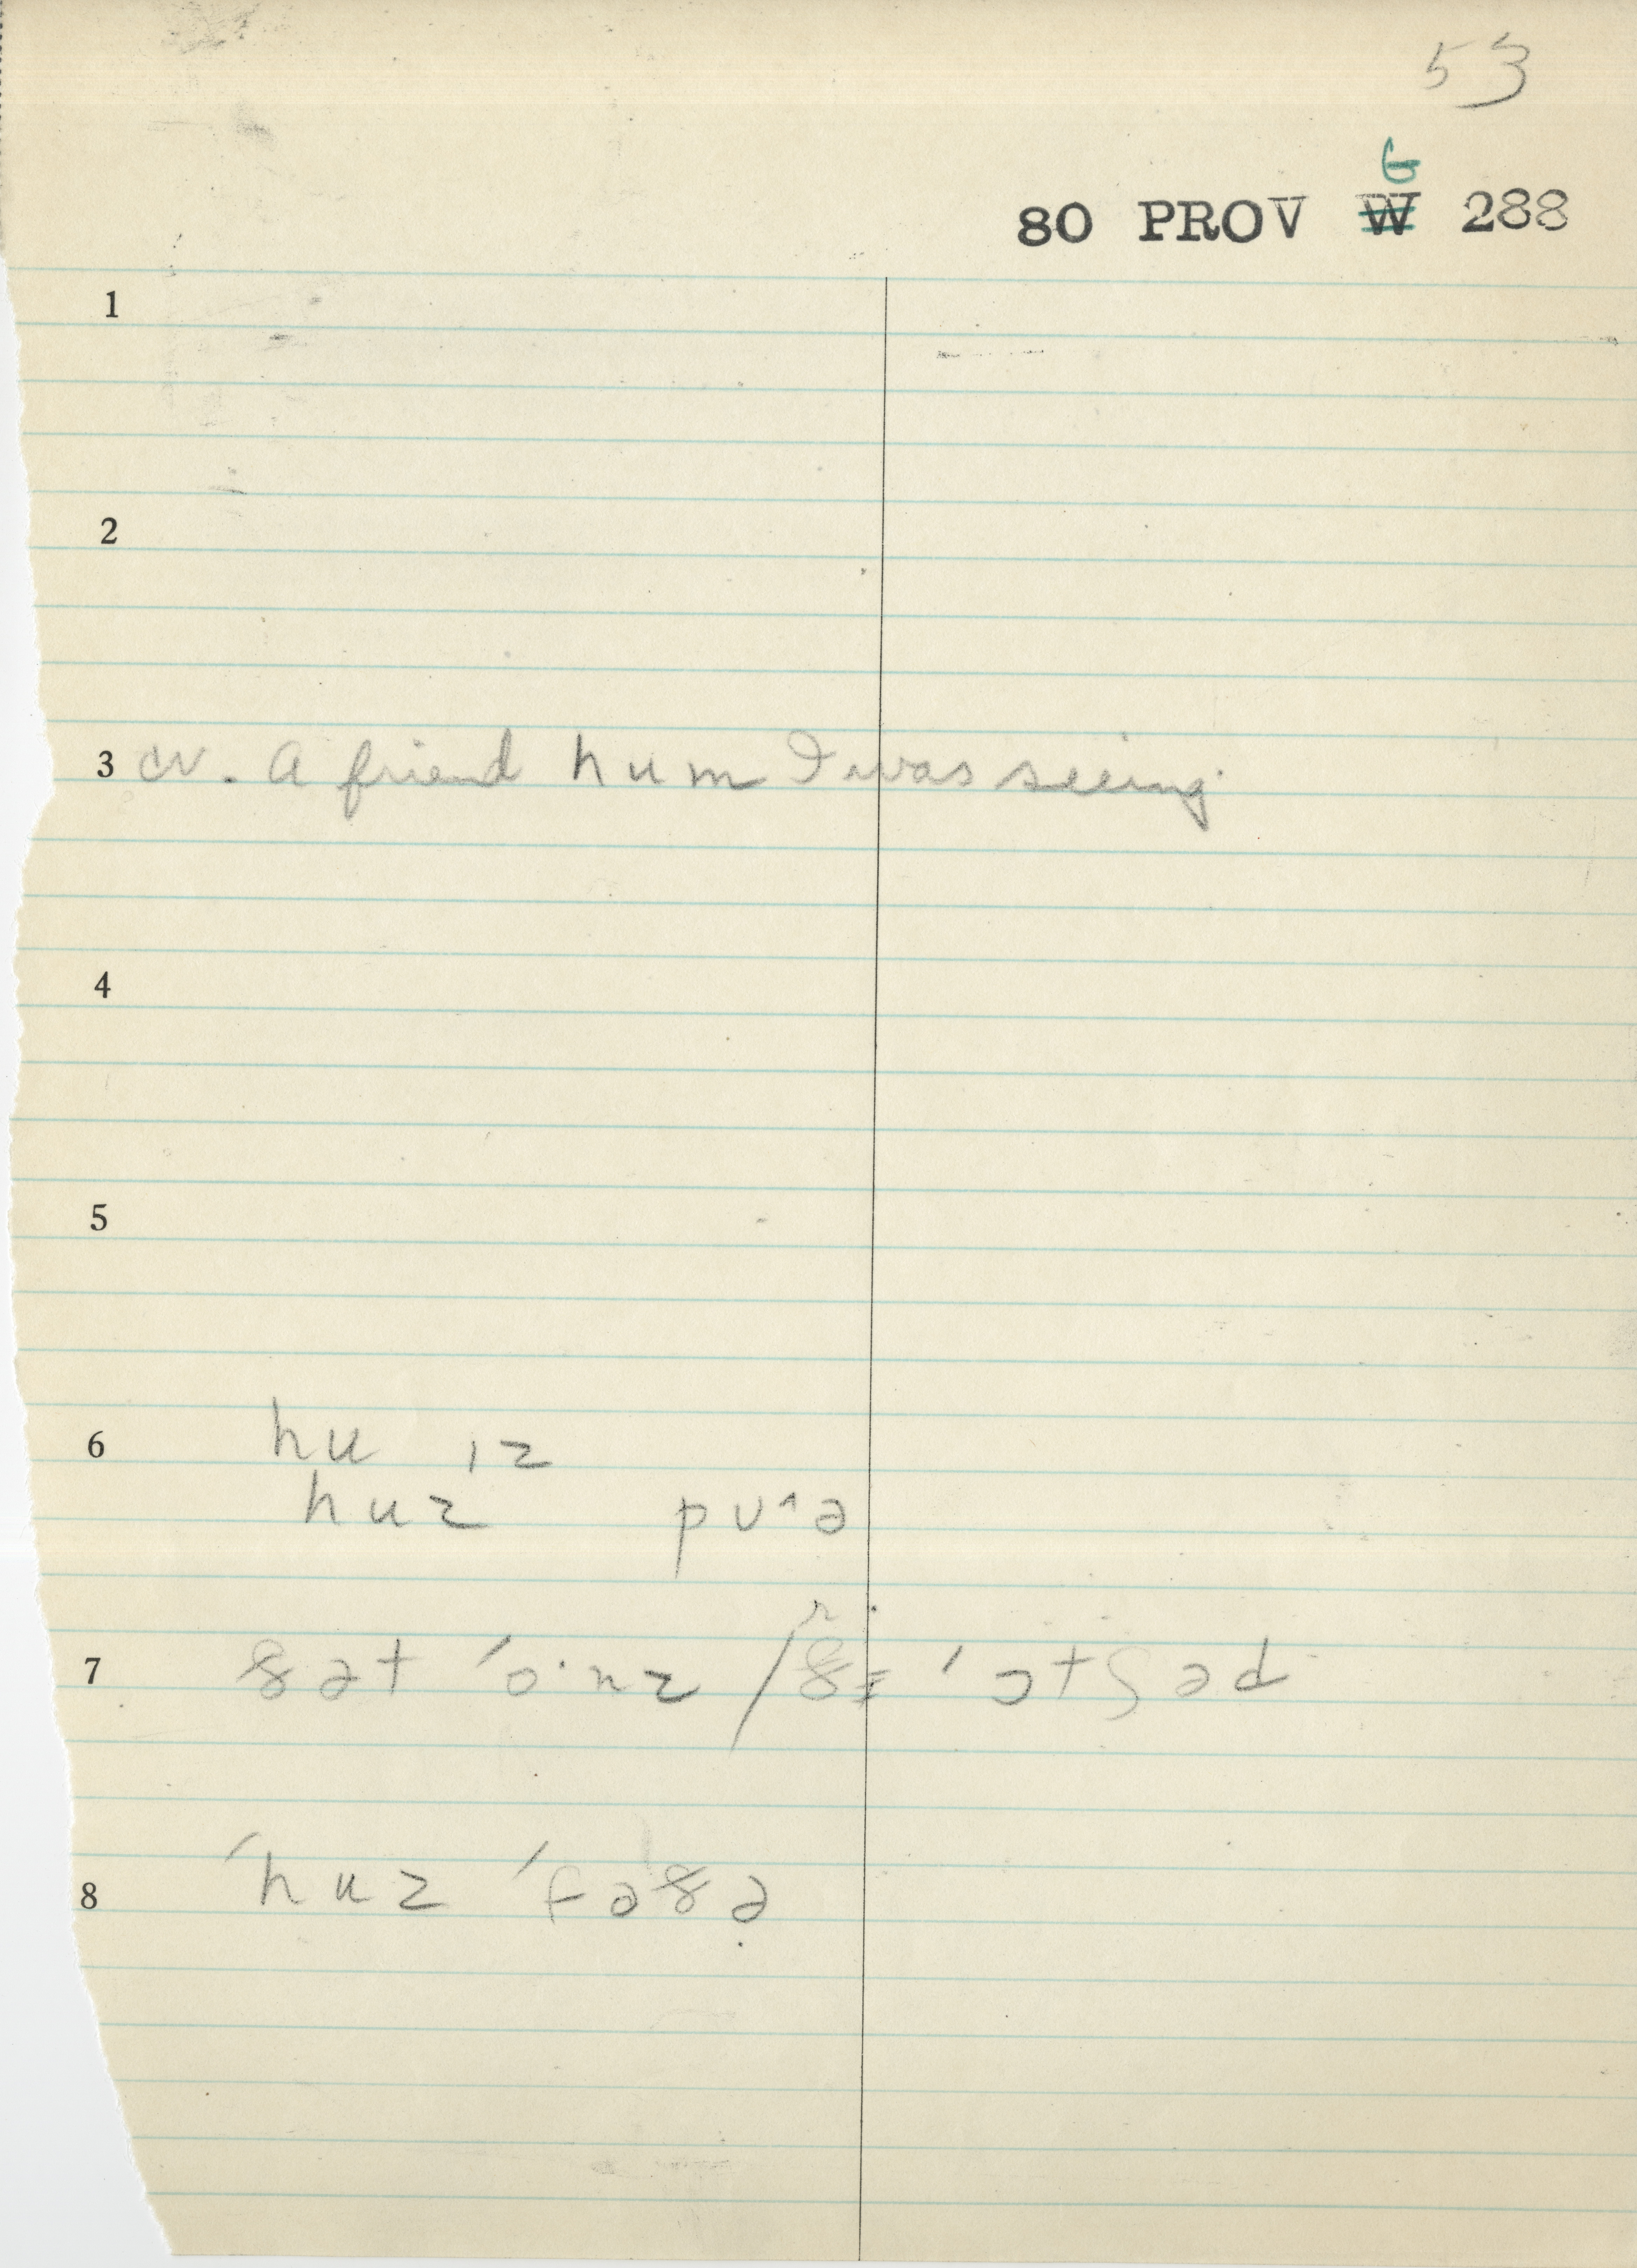 53
G
80 PROV W 288
1
2
3 cv. A friend hum I was seeing
4
5
6 hu ɪz
huz pʊ^ə
r
7 ðət ´o·nz / ðɪ ´ɔtʃəd
8 ´huz ´fɑðə